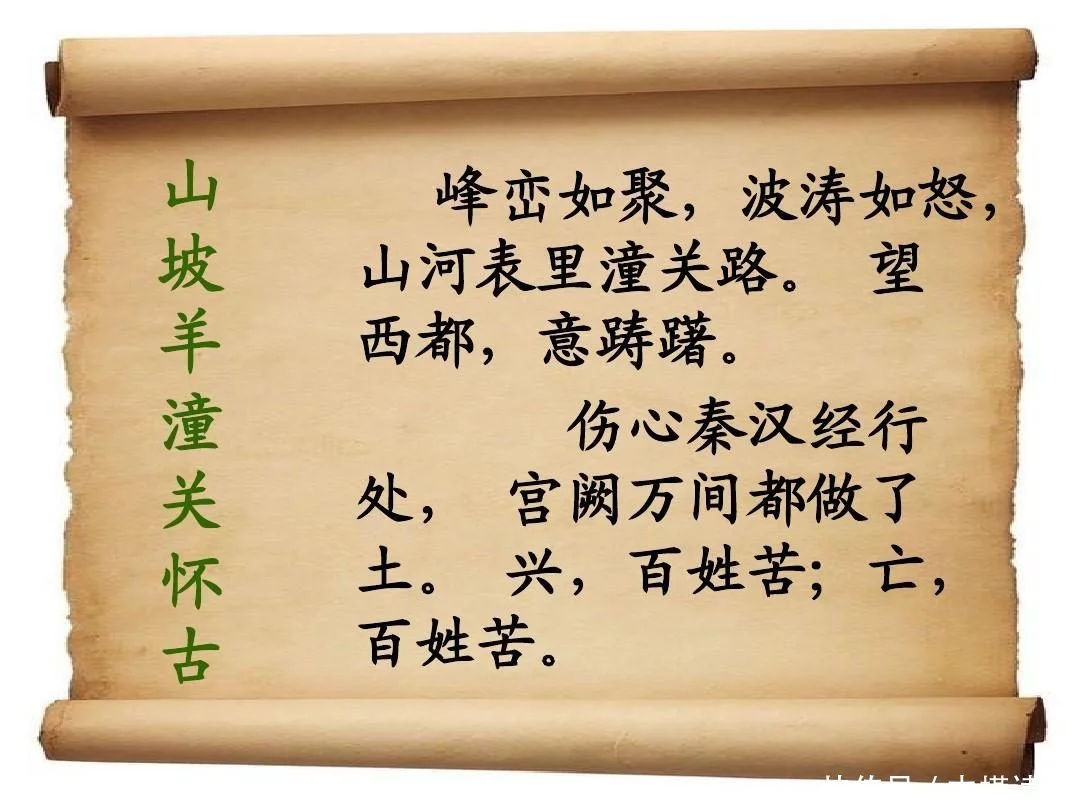 山坡羊潼关怀古
峰峦如聚，波涛如怒，
山河表里潼关路。 望
西都，意踌躇。
伤心秦汉经行
处， 宫阙万间都做了
土。 兴，百姓苦；亡，
百姓苦。